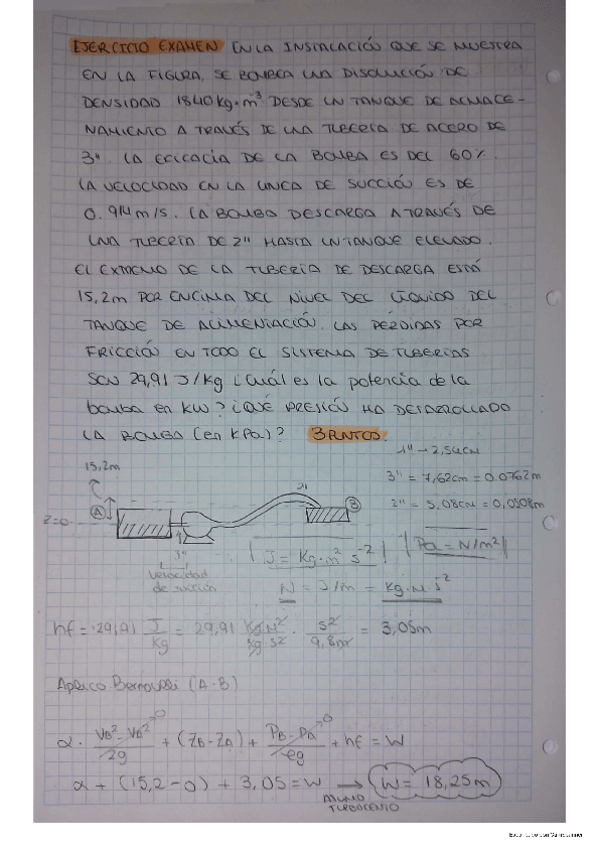 EJERCICIO EXAMEN EN LA INSTALACIÓN QUE SE MUESTRA
EN LA FIGURA, SE BOMBEA UNA DISOLUCIÓN DE
DENSIDAD 1840 kg·m⁻³ DESDE UN TANQUE DE ALMACE-
NAMIENTO A TRAVÉS DE UNA TUBERÍA DE ACERO DE
3". LA EFICACIA DE LA BOMBA ES DEL 60%.
LA VELOCIDAD EN LA LINEA DE SUCCIÓN ES DE
0.914 m/s. LA BOMBA DESCARGA A TRAVÉS DE
UNA TUBERÍA DE 2" HASTA UN TANQUE ELEVADO.
EL EXTREMO DE LA TUBERÍA DE DESCARGA ESTÁ
15,2m POR ENCIMA DEL NIVEL DEL LÍQUIDO DEL
TANQUE DE ALIMENTACIÓN. LAS PÉRDIDAS POR
FRICCIÓN EN TODO EL SISTEMA DE TUBERIAS
SON 29,91 J/kg ¿Cuál es la potencia de la
bomba en kW? ¿QUÉ PRESIÓN HA DESARROLLADO
LA BOMBA (en KPa)? 3 PUNTOS.
1" - 2,54cm
15,2m
3" = 7,62cm = 0.0762m
2" = 5.08cm = 0,0508m
A
2"
B
z=0
3"
J = Kg·m² s⁻²
Pa = N/m²
velocidad
de succión
N = J/m = Kg·m·s⁻²
hf = 29,91 J/Kg = 29,91 Kg·m²/Kg s² · s²/9,8m = 3,05m
Aplico Bernoulli (A-B)
α · VB² - VA²/2g + (ZB - ZA) + PB - PA/ρg + hf = W
α + (15,2 - 0) + 3,05 = W → W = 18,25m
TURBULENTO